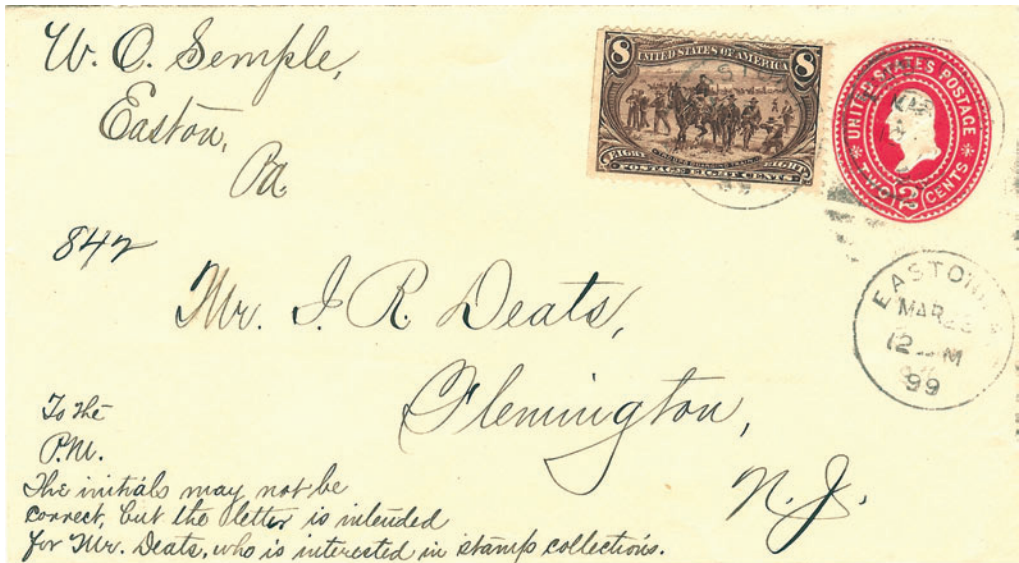 W. O. Semple,
Easton,
Pa.
842
8 UNITED STATES OF AMERICA 8
EIGHT EIGHT
POSTAGE EIGHT CENTS
UNITED STATES POSTAGE
TWO 2 CENTS
EASTON
MAR 23
12 M
99
Mr. I. R. Deats,
Flemington,
N. J.
To the
P.M.
The initials may not be
correct, but the letter is intended
for Mr. Deats, who is interested in stamp collections.